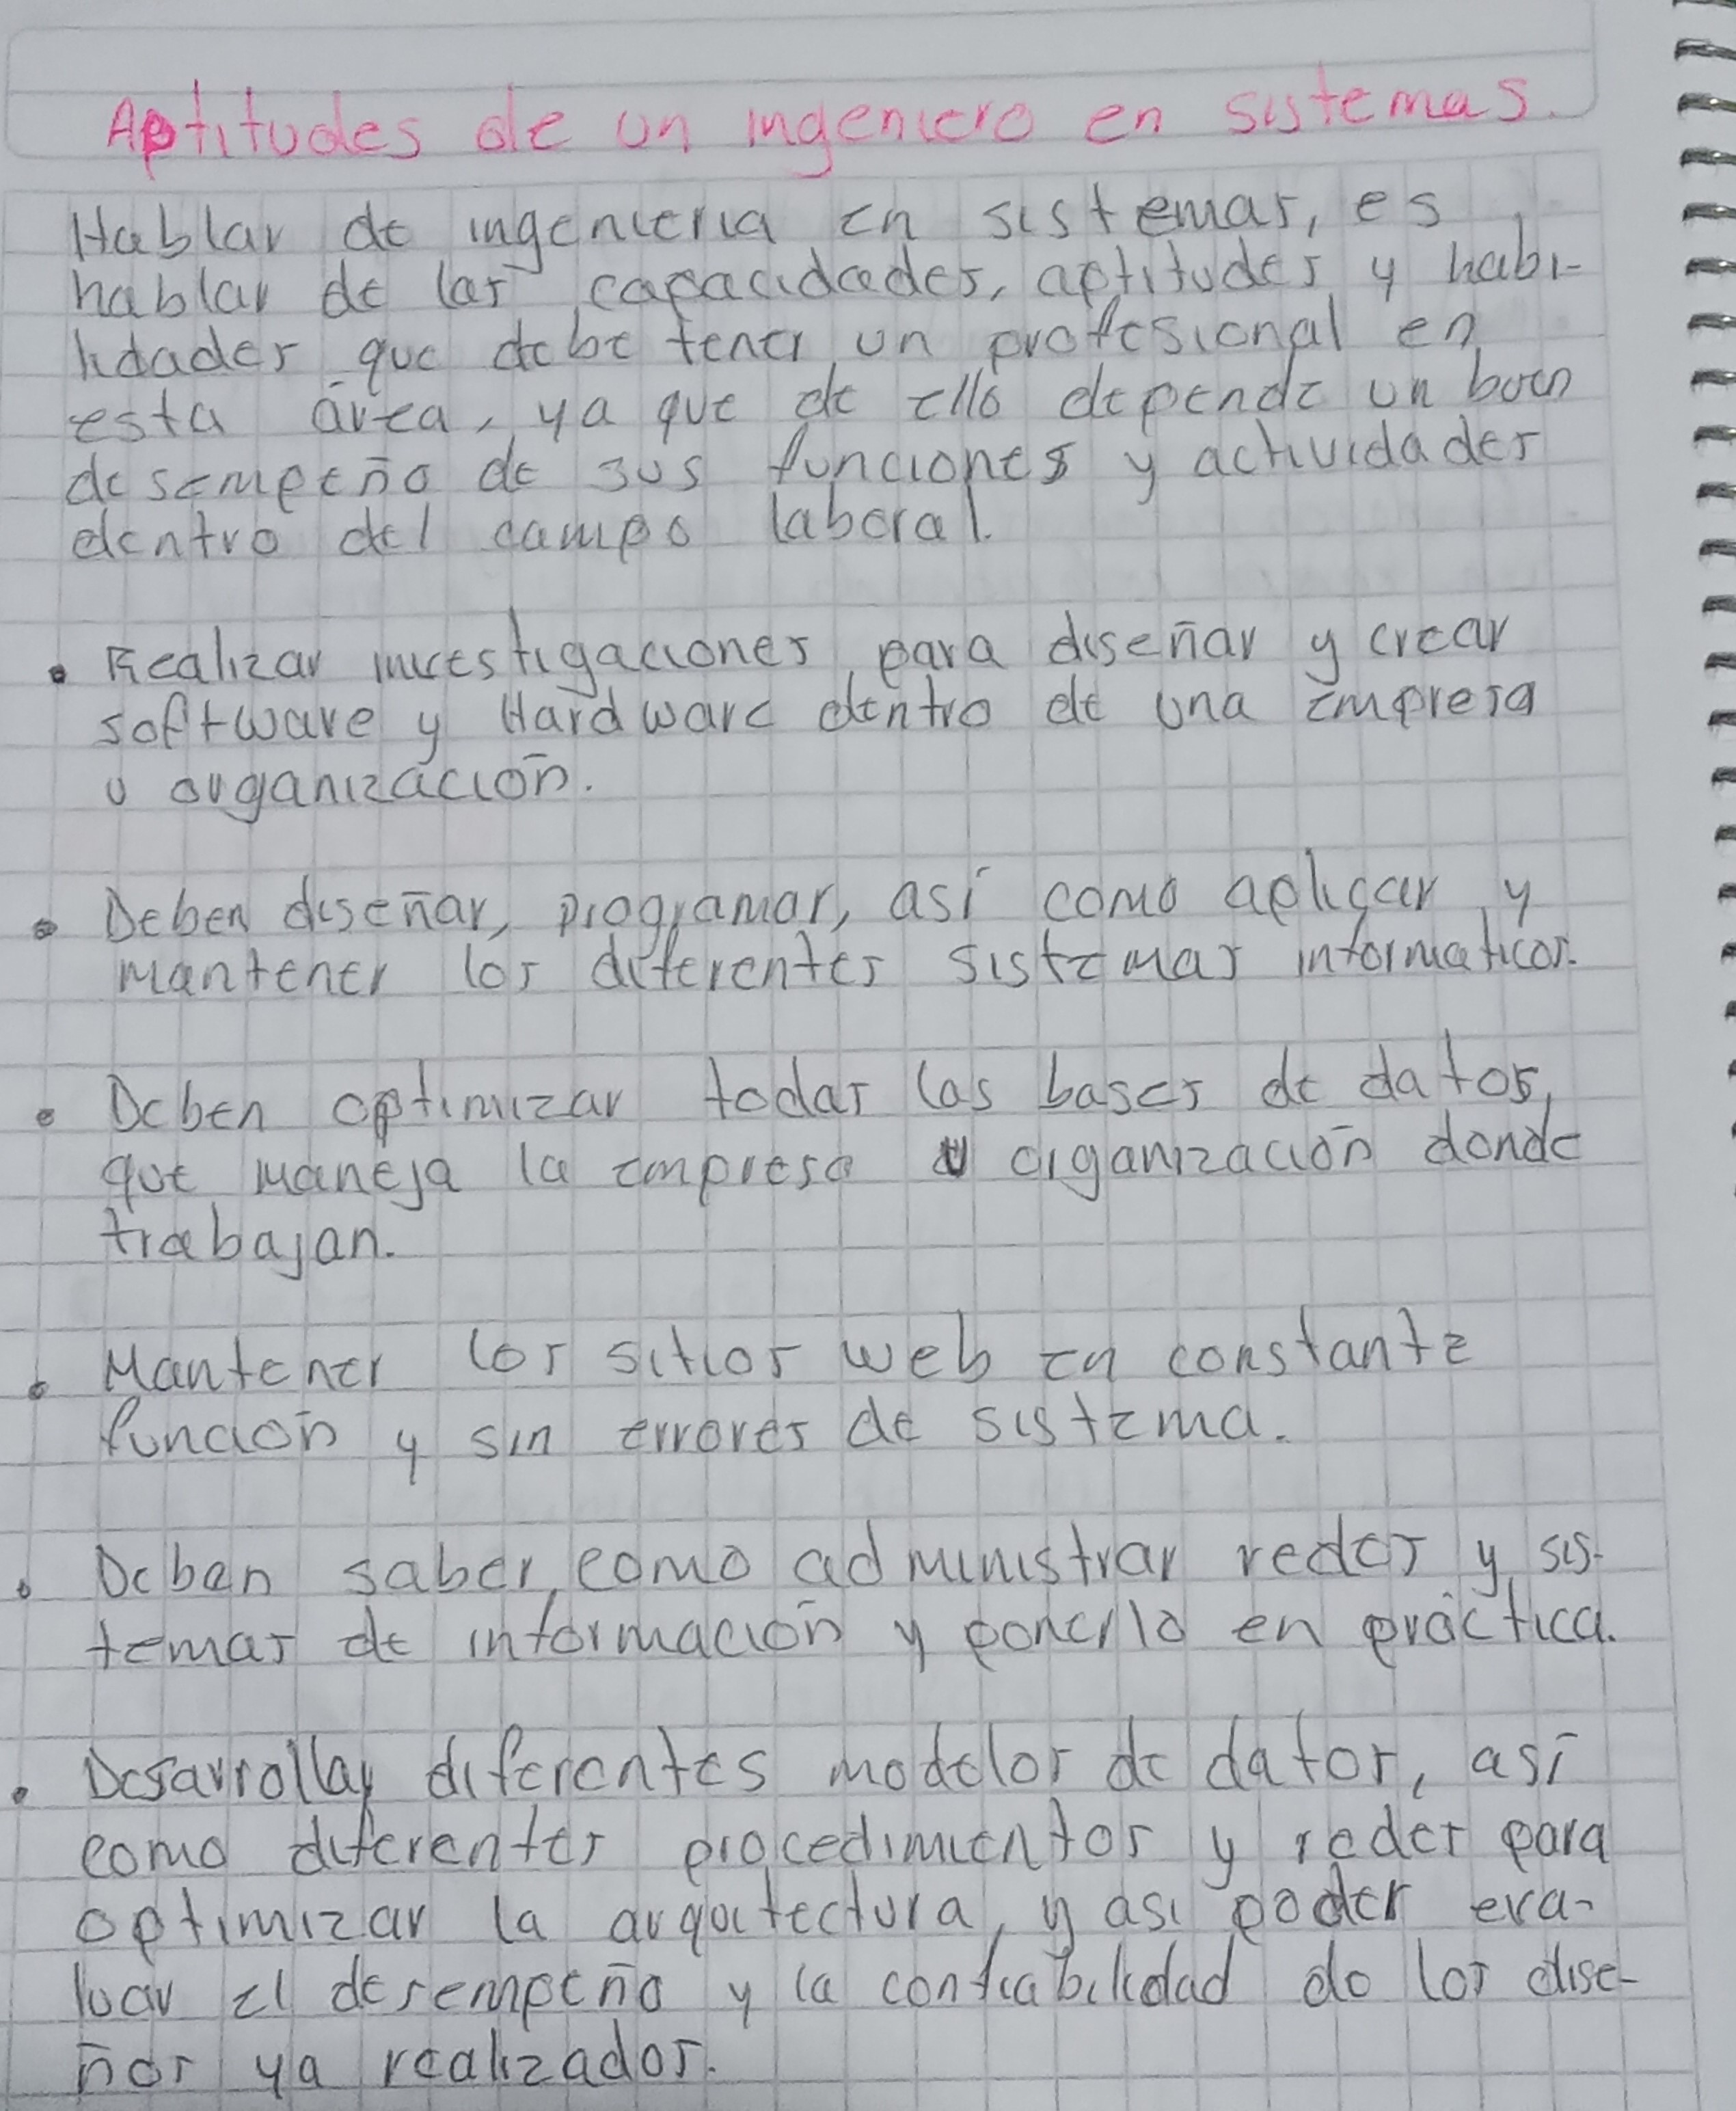 Aptitudes de un ingeniero en sistemas.
Hablar de ingenieria en sistemas, es
hablar de las capacidades, aptitudes y habi-
lidades que debe tener un profesional en
esta área, ya que de ello depende un buen
desempeño de sus funciones y actividades
dentro del campo laboral.
• Realizar investigaciones para diseñar y crear
software y Hardware dentro de una empresa
u organización.
• Deben diseñar, programar, asi como aplicar y
mantener los diferentes sistemas informaticos.
• Deben optimizar todas las bases de datos,
que maneja la empresa u organización donde
trabajan.
• Mantener los sitios web en constante
función y sin errores de sistema.
• Deben saber como administrar redes y sis-
temas de información y ponerlo en práctica.
• Desarrollar diferentes modelos de datos, así
como diferentes procedimientos y redes para
optimizar la arquitectura, y asi poder eva-
luar el desempeño y la confiabilidad de los dise-
ños ya realizados.